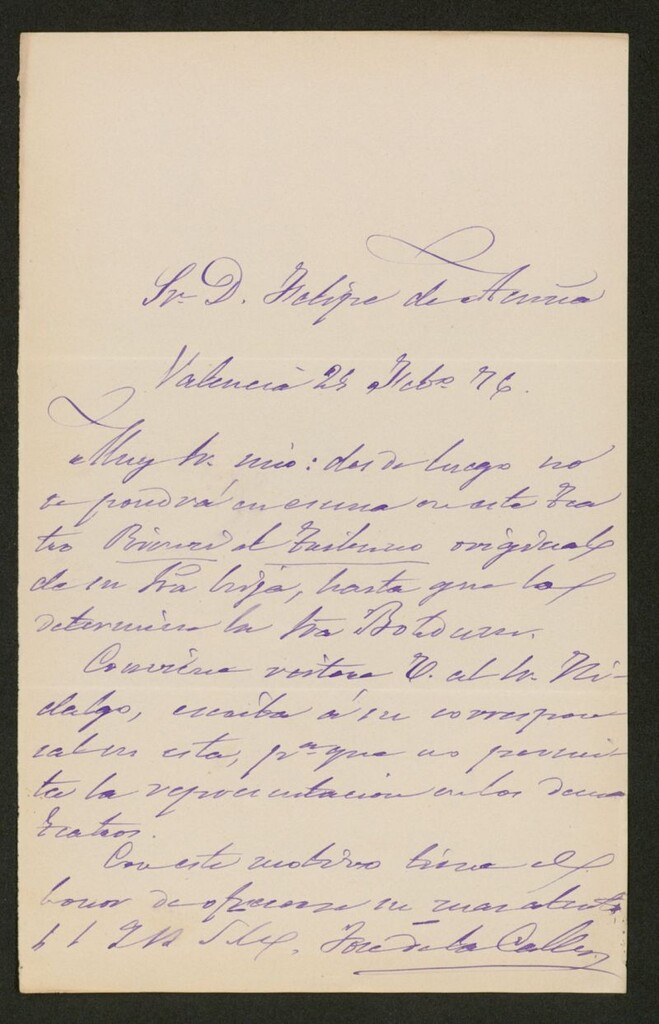 Sr. D. Felipe de Acuña
Valencia 25 Febo 76.
Muy Sr. mio: desde luego no
se pondrá en escena en este Tea
tro Rienzi el Tribuno original
de su Sra hija, hasta que lo
determine la Sra Boldun.
Conviene visitase V. al Sr. Hi-
dalgo, escriba á su correspon
sal en esta, pa que no permi
ta la representacion en los demas
teatros.
Con este motivo tiene el
honor de ofrecerse su mas atento
José de la Calle